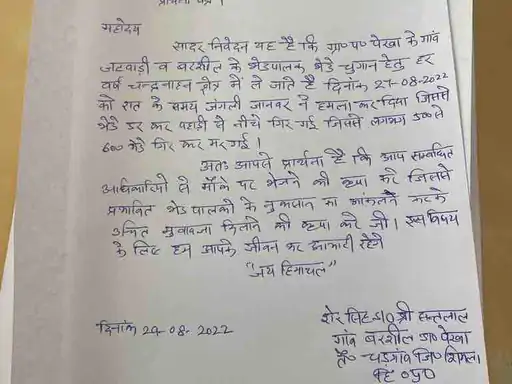 प्रार्थना पत्र।
महोदय
सादर निवेदन यह है कि ग्रा०प० पेखा के गांव
जटवाड़ी व बरशील के भेडपालक भेडे चुगान हेतु हर
वर्ष चन्द्रनाहन क्षेत्र में ले जाते है दिनांक 27-08-2022
को रात के समय जंगली जानवर ने हमला कर दिया जिससे
भेडे डर कर पहाड़ी से नीचे गिर गई जिससे लगभग 500 से
600 भेडे गिर कर मर गई।
अतः आपसे प्रार्थना है कि आप सम्बंधित
अधिकारियों से मौके पर भेजने की कृपा करे जिससे
प्रभावित भेड पालकों के नुकसान का आंकलन करके
उचित मुवावजा दिलाने की कृपा करे जी। इस विषय
के लिए हम आपके जीवन भर आभारी रहेंगे
"जय हिमाचल"
दिनांक 29-08-2022
शेर सिंह S/o श्री सन्तलाल
गांव बरशील डा० पेखा
तै० चड़गांव जि० शिमला
हि० प्र०